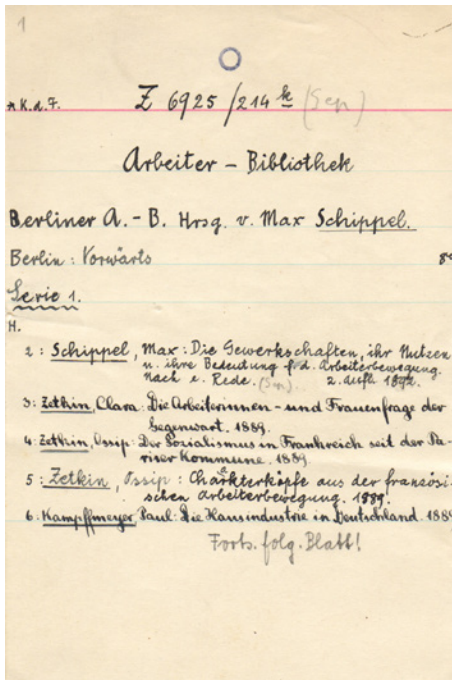 1
* K.d.F. Z 6925/214 k (Sep)
Arbeiter - Bibliothek
Berliner A. - B. Hrsg. v. Max Schippel.
Berlin: Vorwärts 89
Serie 1.
H.
2: Schippel, Max: Die Gewerkschaften, ihr Nutzen
u. ihre Bedeutung f. d. Arbeiterbewegung.
Nach e. Rede. (Sep.) 2. Aufl. 1892.
3: Zetkin, Clara: Die Arbeiterinnen - und Frauenfrage der
Gegenwart. 1889.
4: Zetkin, Ossip: Der Sozialismus in Frankreich seit der Pa-
riser Kommune. 1889.
5: Zetkin, Ossip: Charakterköpfe aus der französi-
schen Arbeiterbewegung. 1889.
6: Kampffmeyer, Paul: Die Hausindustrie in Deutschland. 1889
Forts. folg. Blatt!